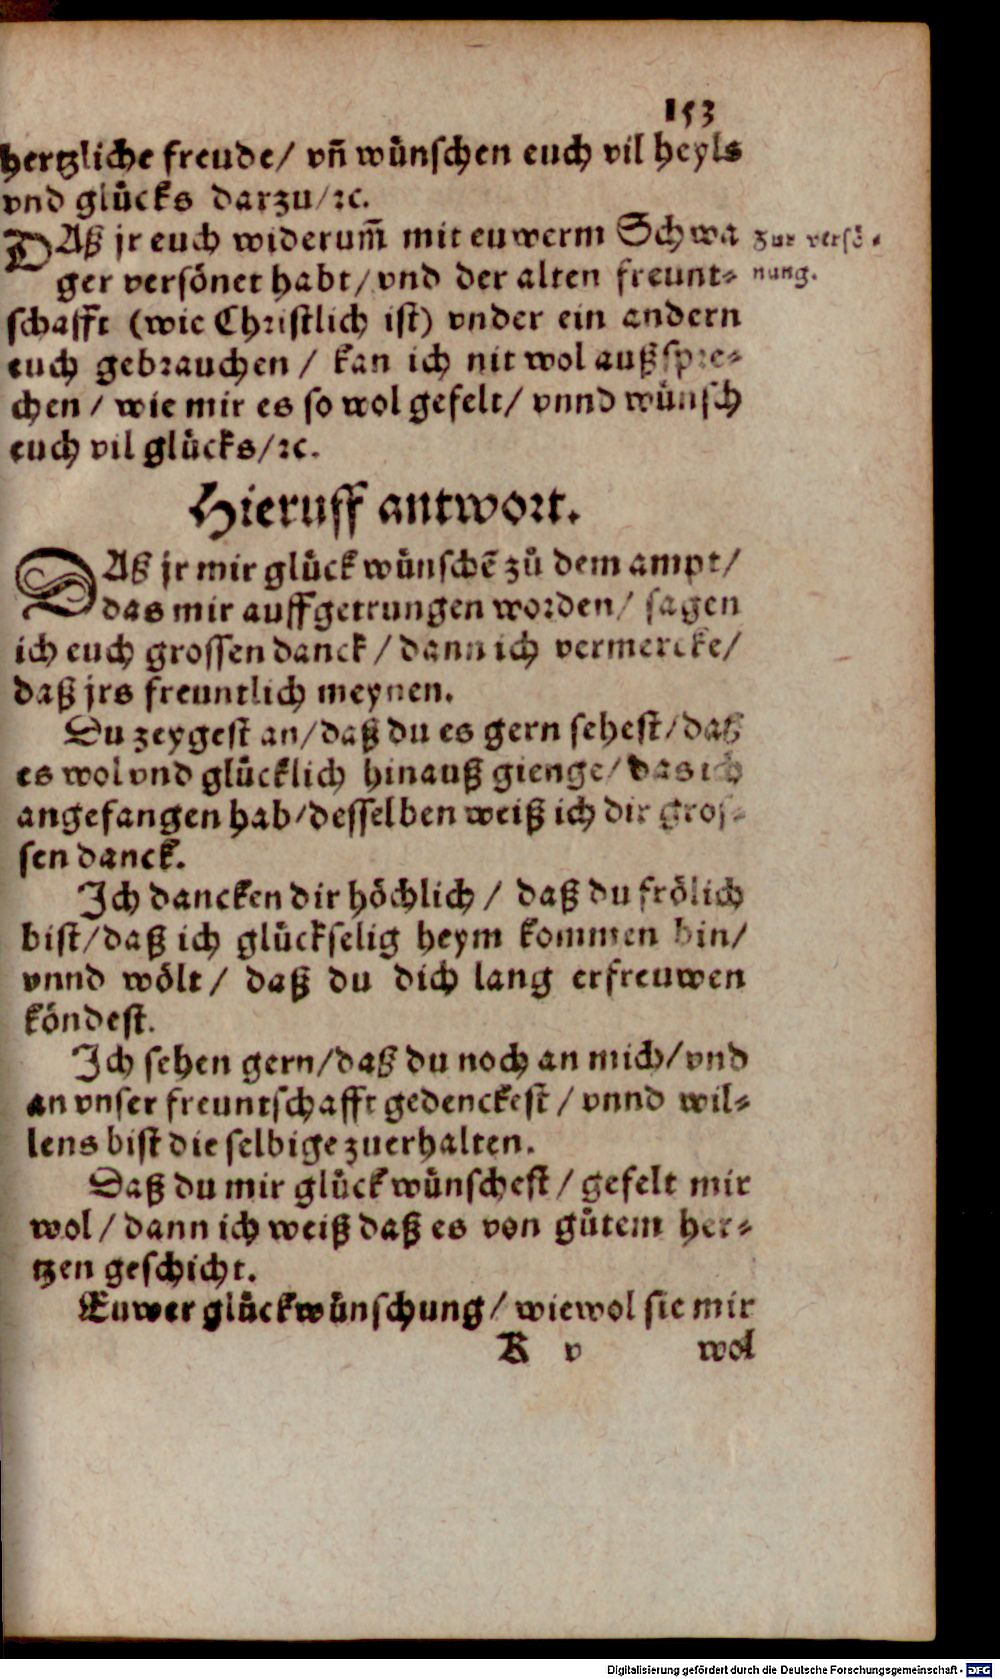 153
hertzliche freude/ vn̄ wünschen euch vil heyls
vnd glücks darzu/ꝛc.
DAß jr euch widerum̄ mit euwerm Schwa
ger versönet habt/ vnd der alten freunt-
schafft (wie Christlich ist) vnder ein andern
euch gebrauchen / kan ich nit wol außspre-
chen / wie mir es so wol gefelt/ vnnd wünsch
euch vil glücks/ꝛc.
zur versö-
nung.
Hieruff antwort.
DAß jr mir glück wünschē zů dem ampt/
das mir auffgetrungen worden/ sagen
ich euch grossen danck / dann ich vermercke/
daß jrs freuntlich meynen.
Du zeygest an/daß du es gern sehest/daß
es wol vnd glücklich hinauß gienge/das ich
angefangen hab/desselben weiß ich dir gros-
sen danck.
Ich dancken dir höchlich / daß du frölich
bist/daß ich glückselig heym kommen bin/
vnnd wölt/ daß du dich lang erfreuwen
köndest.
Ich sehen gern/daß du noch an mich/vnd
an vnser freuntschafft gedenckest / vnnd wil-
lens bist die selbige zuerhalten.
Daß du mir glück wünschest / gefelt mir
wol/ dann ich weiß daß es von gůtem her-
tzen geschicht.
Euwer glückwünschung/ wiewol sie mir
R v wol
Digitalisierung gefördert durch die Deutsche Forschungsgemeinschaft - DFG